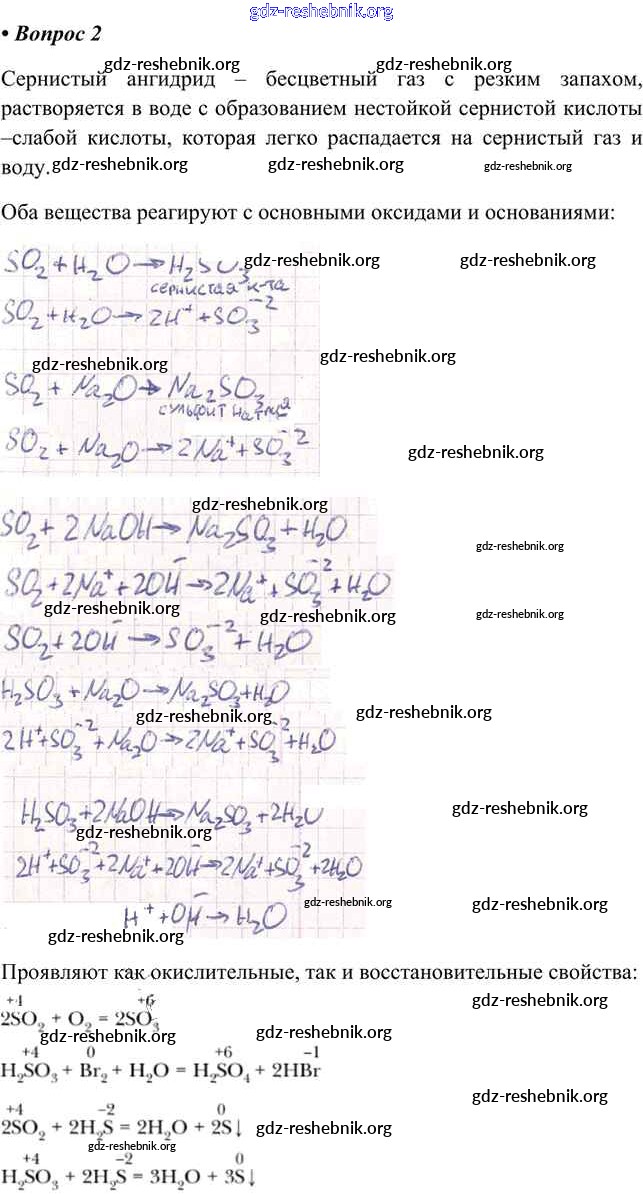 gdz-reshebnik.org
• Вопрос 2
gdz-reshebnik.org gdz-reshebnik.org
Сернистый ангидрид – бесцветный газ с резким запахом,
gdz-reshebnik.org
растворяется в воде с образованием нестойкой сернистой кислоты
–слабой кислоты, которая легко распадается на сернистый газ и
воду. gdz-reshebnik.org gdz-reshebnik.org gdz-reshebnik.org
Оба вещества реагируют с основными оксидами и основаниями:
SO₂ + H₂O → H₂SO₃ gdz-reshebnik.org gdz-reshebnik.org
сернистая к-та
SO₂ + H₂O → 2H⁺ + SO₃⁻²
gdz-reshebnik.org gdz-reshebnik.org
SO₂ + Na₂O → Na₂SO₃
сульфит натрия
SO₂ + Na₂O → 2Na⁺ + SO₃⁻² gdz-reshebnik.org
gdz-reshebnik.org
SO₂ + 2NaOH → Na₂SO₃ + H₂O
gdz-reshebnik.org
SO₂ + 2Na⁺ + 2OH⁻ → 2Na⁺ + SO₃⁻² + H₂O
gdz-reshebnik.org gdz-reshebnik.org gdz-reshebnik.org
SO₂ + 2OH⁻ → SO₃⁻² + H₂O
H₂SO₃ + Na₂O → Na₂SO₃ + H₂O
gdz-reshebnik.org gdz-reshebnik.org
2H⁺ + SO₃⁻² + Na₂O → 2Na⁺ + SO₃⁻² + H₂O
H₂SO₃ + 2NaOH → Na₂SO₃ + 2H₂O gdz-reshebnik.org
gdz-reshebnik.org
2H⁺ + SO₃⁻² + 2Na⁺ + 2OH⁻ → 2Na⁺ + SO₃⁻² + 2H₂O
gdz-reshebnik.org gdz-reshebnik.org
H⁺ + OH⁻ → H₂O
gdz-reshebnik.org
Проявляют как окислительные, так и восстановительные свойства:
+4 +6 gdz-reshebnik.org
2SO₂ + O₂ = 2SO₃
gdz-reshebnik.org gdz-reshebnik.org
+4 0 +6 –1
H₂SO₃ + Br₂ + H₂O = H₂SO₄ + 2HBr
gdz-reshebnik.org
+4 –2 0
2SO₂ + 2H₂S = 2H₂O + 2S↓ gdz-reshebnik.org
gdz-reshebnik.org
+4 –2 0
H₂SO₃ + 2H₂S = 3H₂O + 3S↓